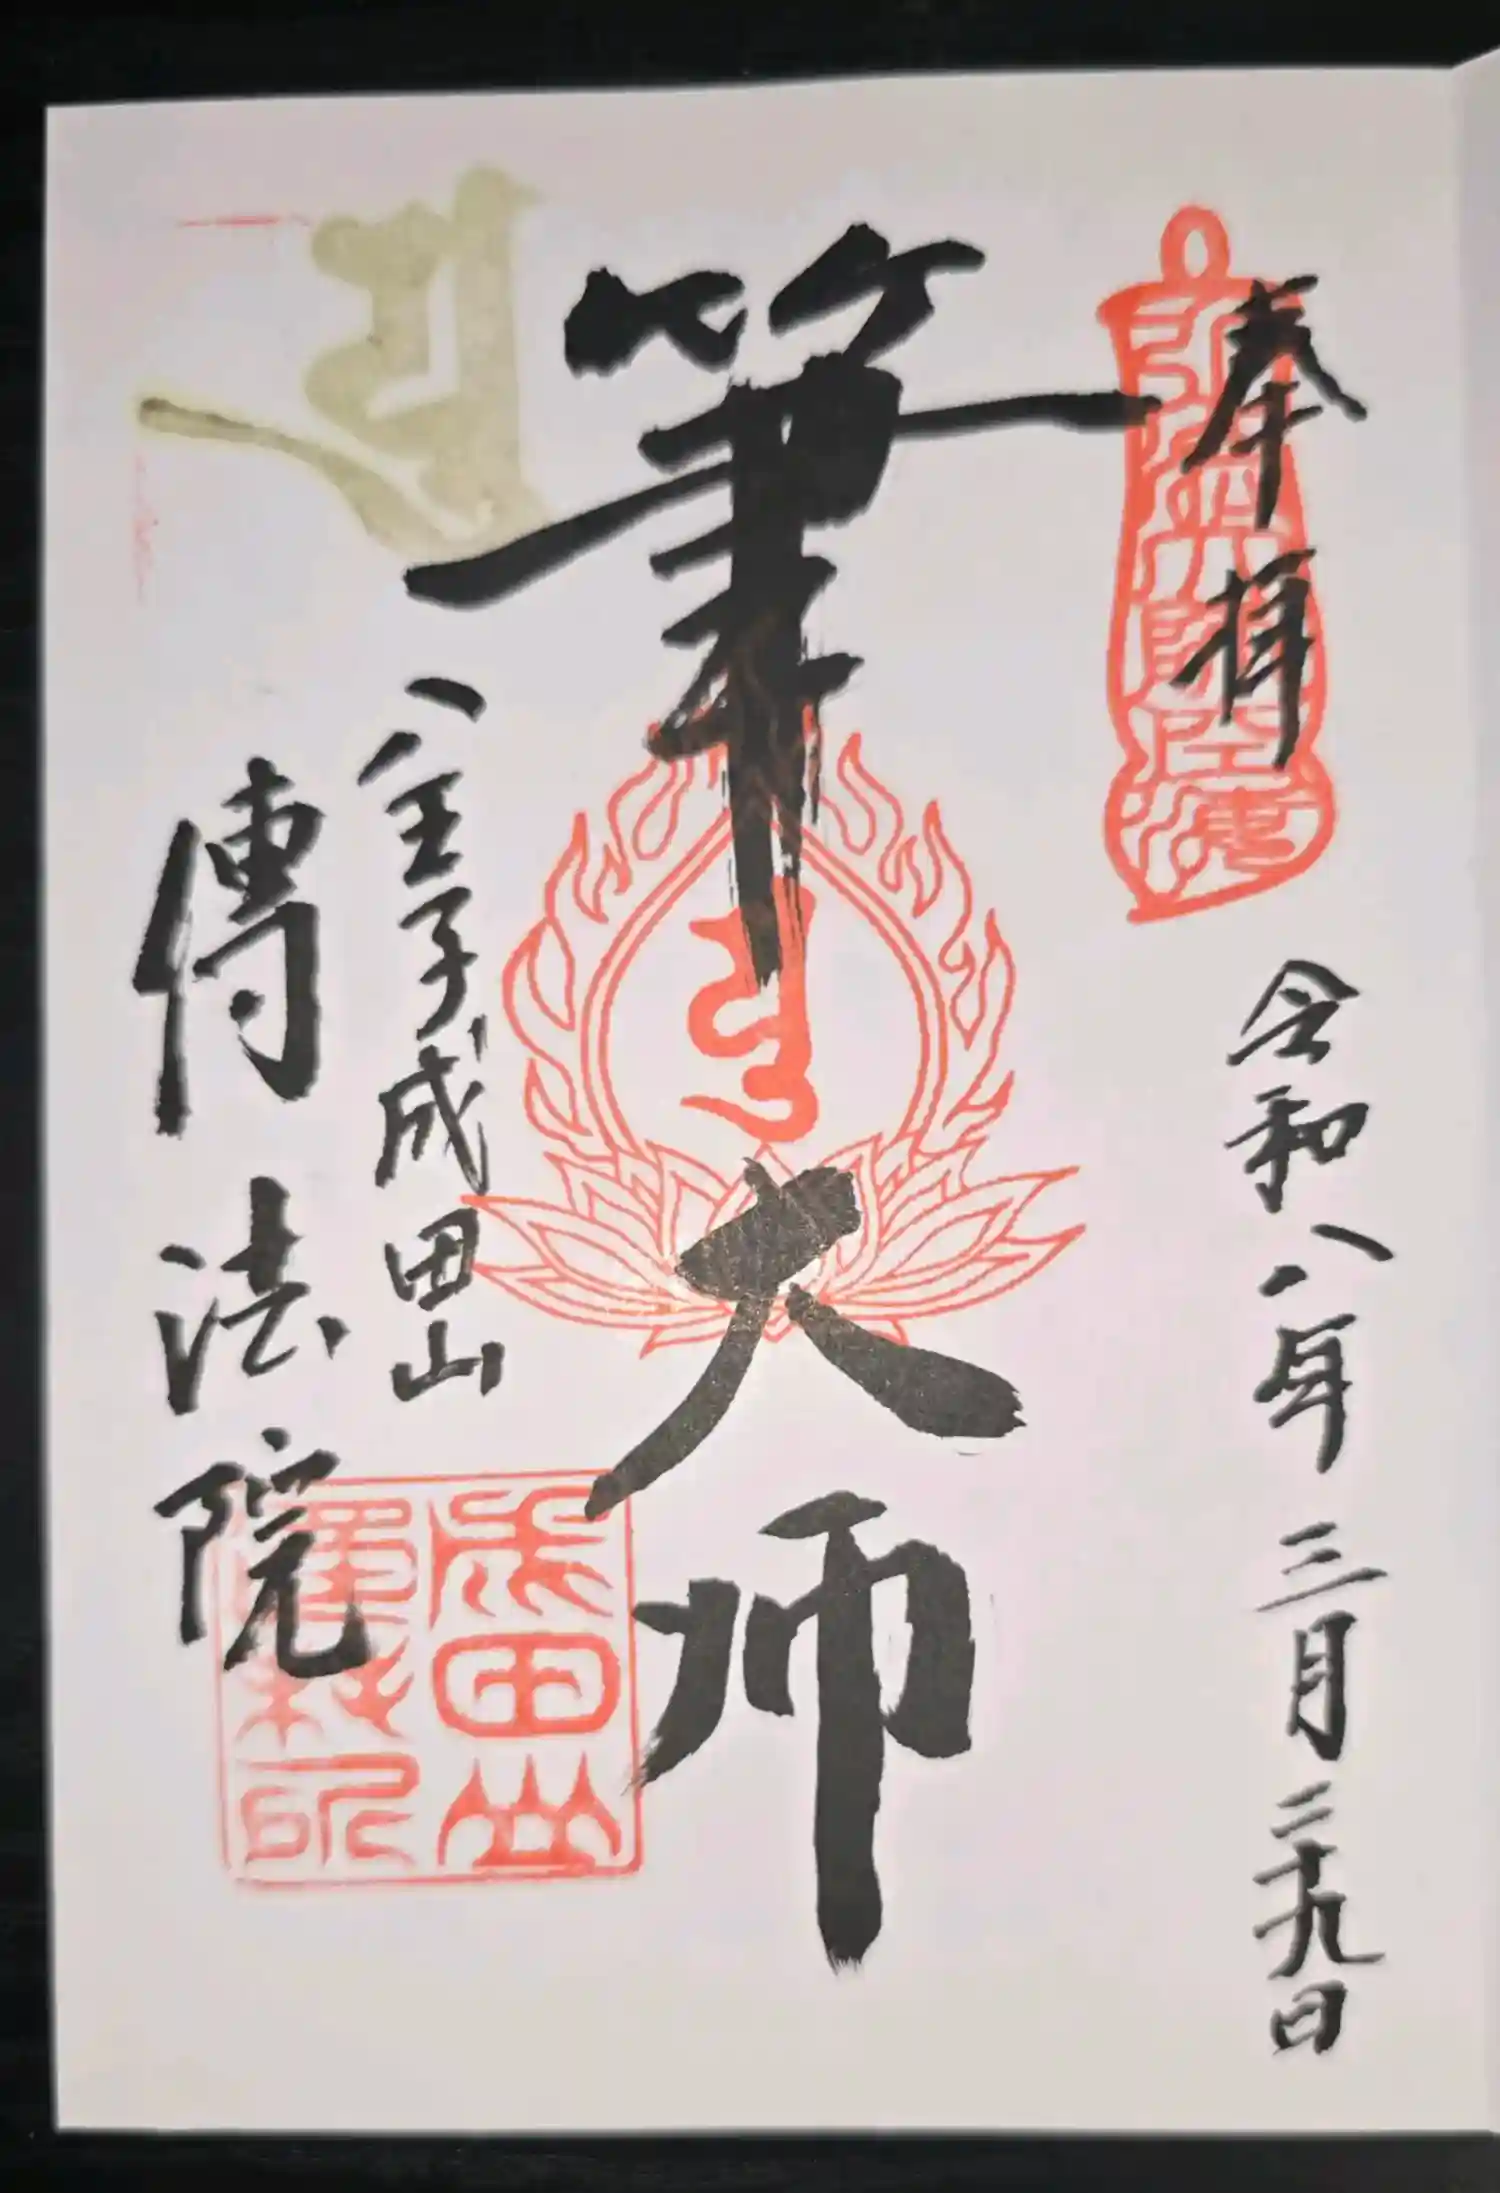 奉拝
令和八年三月二十九日
筆大師
八王子成田山
傳法院
弘法大師空海
成田山